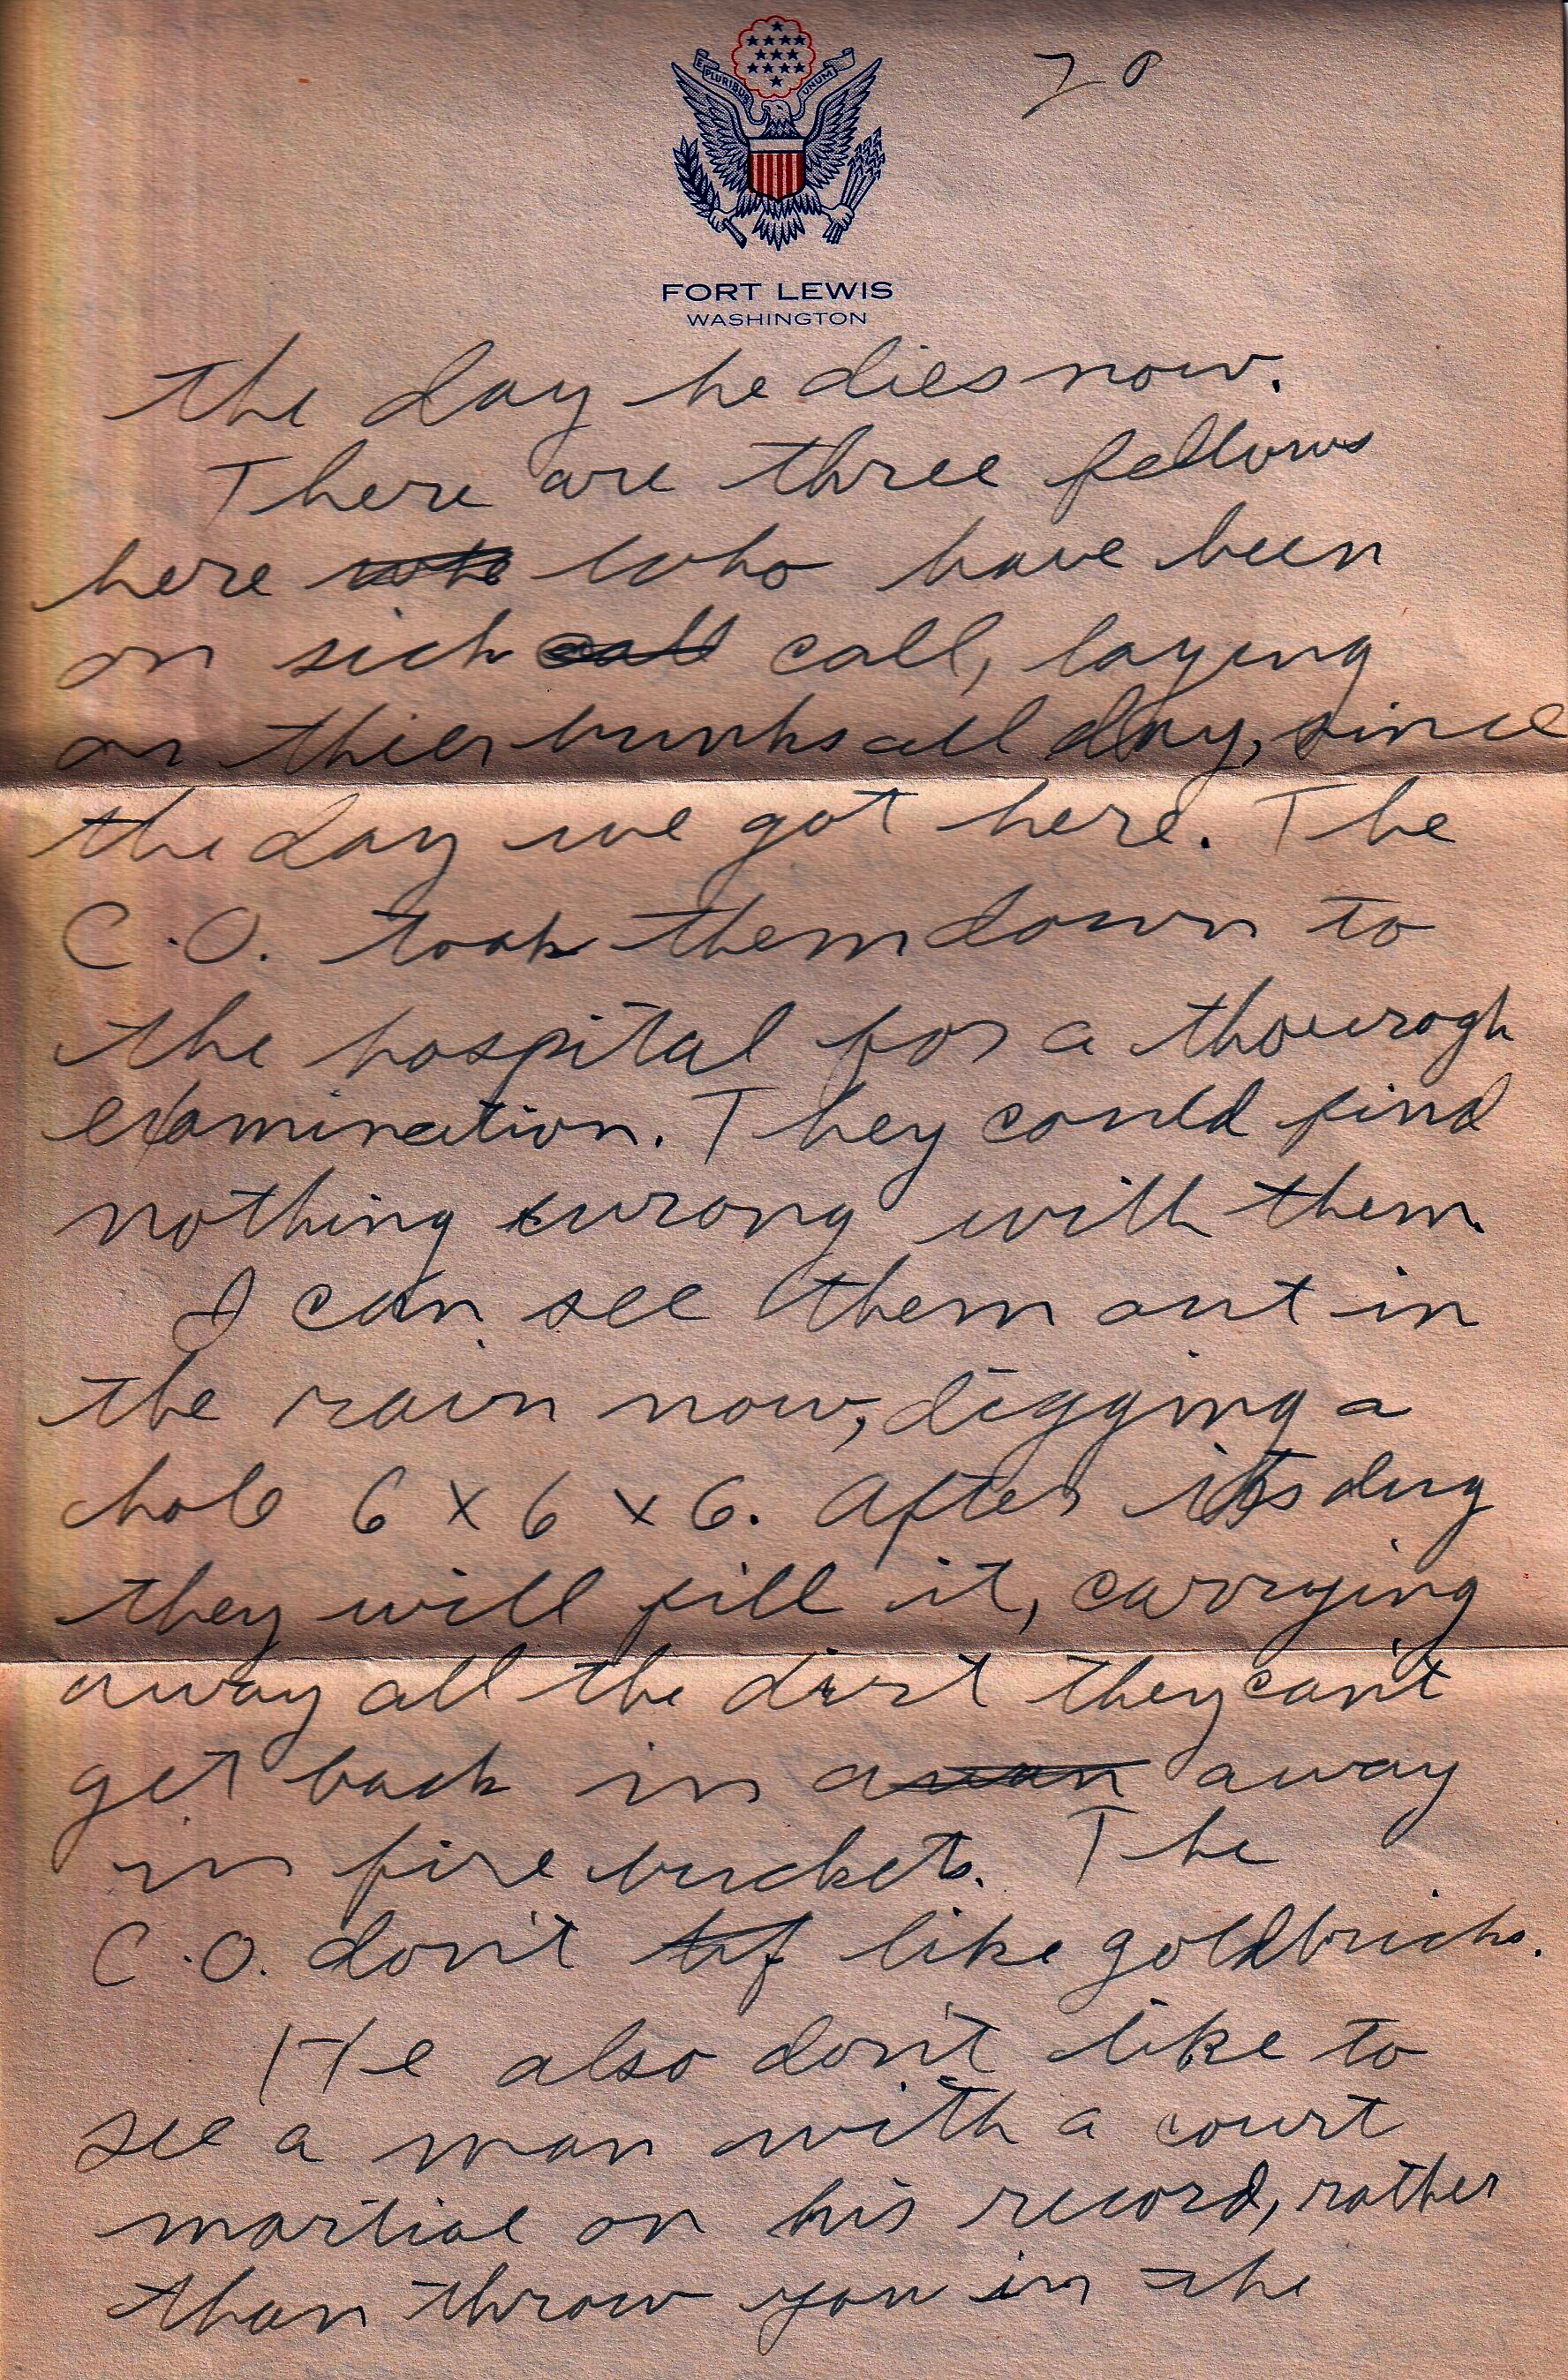 E PLURIBUS UNUM
FORT LEWIS
WASHINGTON
the day he dies now.
There are three fellows
here who have been
on sick call call, laying
on thier bunks all day, since
the day we got here. The
C.O. took them down to
the hospital for a thourogh
examination. They could find
nothing wrong with them.
I can see them out in
the rain now, digging a
hole 6 x 6 x 6. After its dug
they will fill it, carrying
away all the dirt they can't
get back in away
in fire buckets. The
C.O. don't like goldbricks.
He also don't like to
see a man with a court
martial on his record, rather
than throw you in the